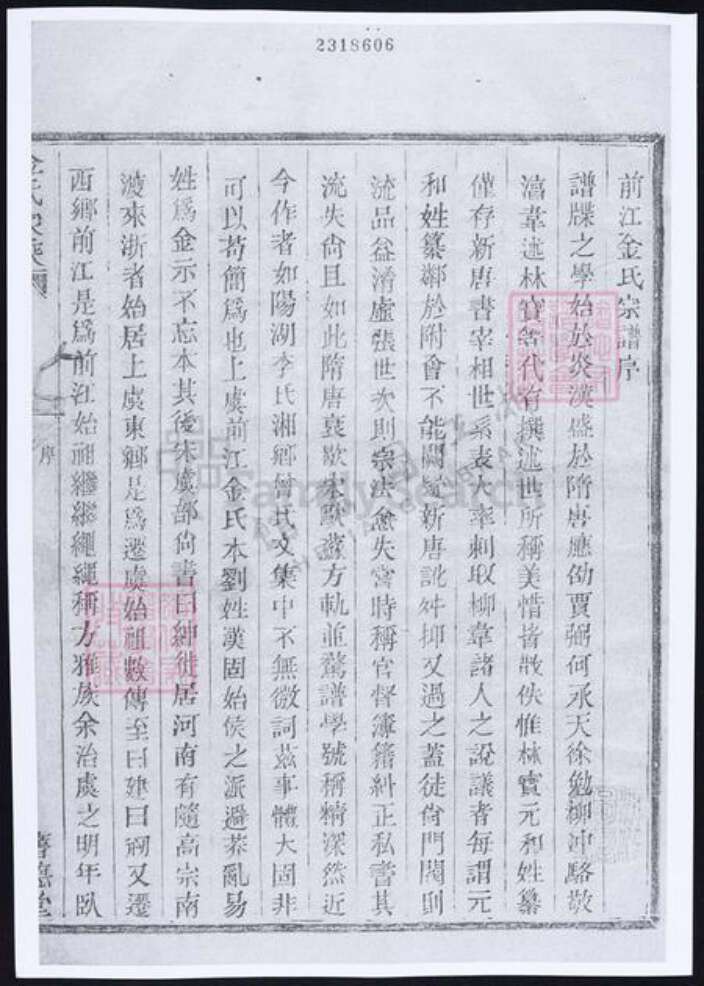 2318606
前江金氏宗譜序
譜牒之學始於炎漢盛於隋唐應劭賈弼何承天徐勉柳沖駱敬
韋述林寶等代有撰述世所稱美惜皆散佚惟林寶元和姓纂
僅存新唐書宰相世系表大率刺取柳韋諸人之說議者每謂元
和姓纂鄰於附會不能闕疑新唐訛舛抑又過之蓋徒尙門閥則
流品益淆虛張世次則宗法愈失當時稱官督簿籍糾正私書其
流失尙且如此隋唐衰歇宋歐蘇方軌並騖譜學號稱精深然近
今作者如陽湖李氏湘鄉曾氏文集中不無微詞茲事體大固非
可以苟簡爲也上虞前江金氏本劉姓漢固始侯之派避莽亂易
姓爲金示不忘本其後宋虞部尙書曰紳徙居河南有隨高宗南
渡來浙者始居上虞東鄉是爲遷虞始祖數傳至曰建曰嗣又遷
西鄉前江是爲前江始祖繼繼繩繩稱方雅族余治虞之明年臥
金氏宗譜
序